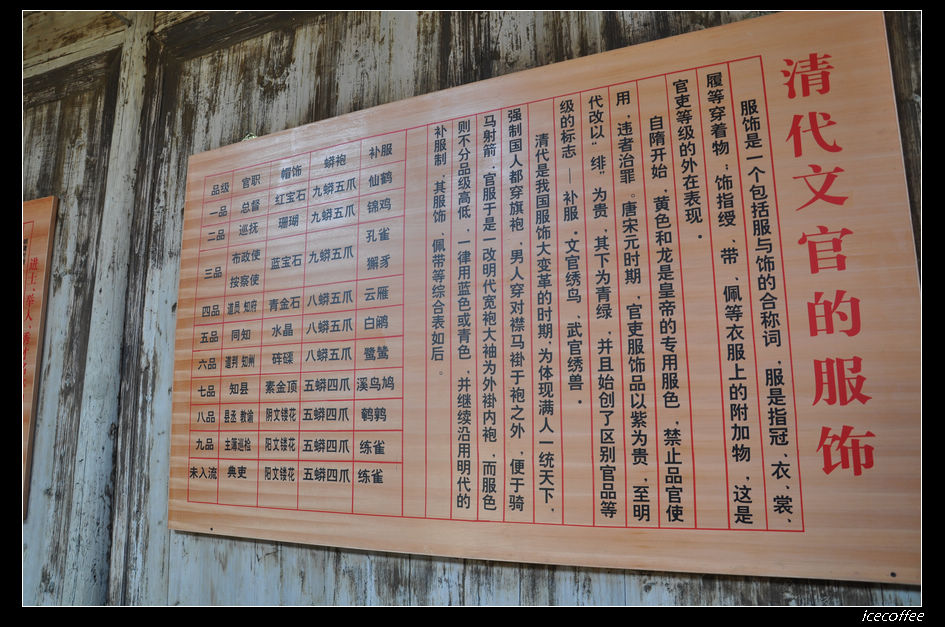 清代文官的服饰
服饰是一个包括服与饰的合称词，服是指冠、衣、裳、
履等穿着物，饰指绶、带、佩等衣服上的附加物，这是
官吏等级的外在表现。
自隋开始，黄色和龙是皇帝的专用服色，禁止品官使
用，违者治罪。唐宋元时期，官吏服饰品以紫为贵，至明
代改以“绯”为贵，其下为青绿，并且始创了区别官品等
级的标志—补服。文官绣鸟、武官绣兽。
清代是我国服饰大变革的时期，为体现满人一统天下，
强制国人都穿旗袍，男人穿对襟马褂于袍之外，便于骑
马射箭，官服于是一改明代宽袍大袖为外褂内袍，而服色
则不分品级高低，一律用蓝色或青色，并继续沿用明代的
补服制，其服饰、佩带等综合表如后。
品级 官职 帽饰 蟒袍 补服
一品 总督 红宝石 九蟒五爪 仙鹤
二品 巡抚 珊瑚 九蟒五爪 锦鸡
三品 布政使 按察使 蓝宝石 九蟒五爪 孔雀 獬豸
四品 道员 知府 青金石 八蟒五爪 云雁
五品 同知 水晶 八蟒五爪 白鹇
六品 通判 知州 砗磲 八蟒五爪 鹭鸶
七品 知县 素金顶 五蟒四爪 溪鸟鸠
八品 县丞 教谕 阴文镂花 五蟒四爪 鹌鹑
九品 主簿巡检 阳文镂花 五蟒四爪 练雀
未入流 典吏 阳文镂花 五蟒四爪 练雀
进士、举人、
icecoffee